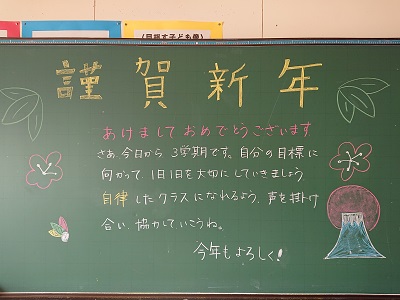 (目指す子ども像)
謹賀新年
あけましておめでとうございます
さあ、今日から3学期です。自分の目標に
向かって、1日1日を大切にしていきましょう
自律したクラスになれるよう、声を掛け
合い、協力していこうね。
今年もよろしく!